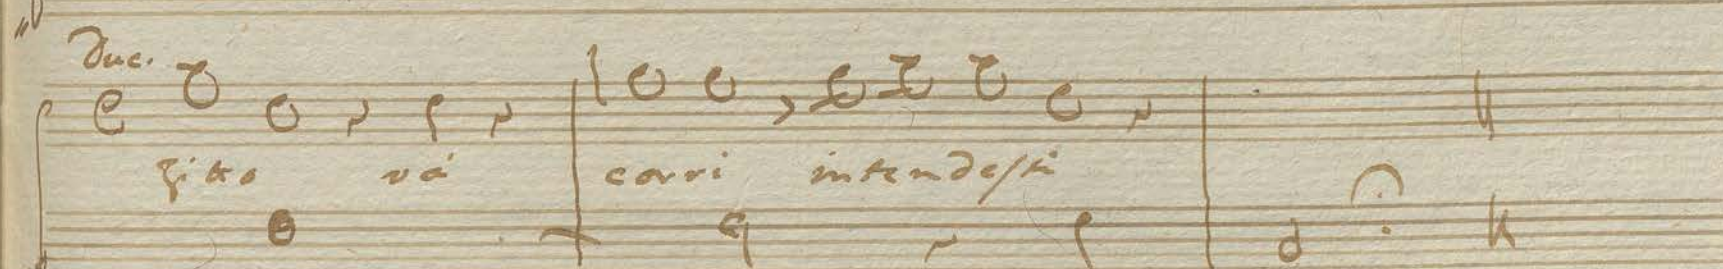 Duc.
Zitto và corri intendesti